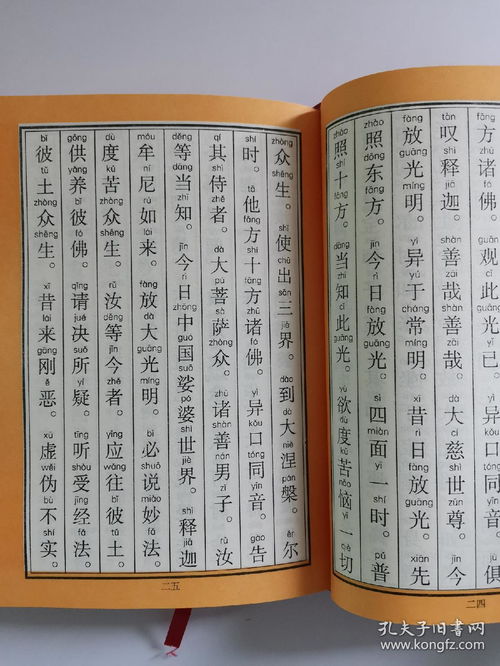 方诸佛。观此光已。俱
叹释迦。善哉善哉。大慈世尊。今
放光明。异于常明。昔日放光。先
照东方。今日放光。四面一时。普
照十方。当知此光。欲度苦恼一切
二四
众生。使出三界。到大涅槃。尔
时。他方十方诸佛。异口同音。告
其侍者。大菩萨众。诸善男子。汝
等当知。今日中国娑婆世界。释迦
牟尼如来。放大光明。必说妙法。
度苦众生。汝等今者。应往彼土。
供养彼佛。请决所疑。听受经法。
彼土众生。昔来刚恶。虚伪不实。
二五
孔夫子旧书网
kongfz.com